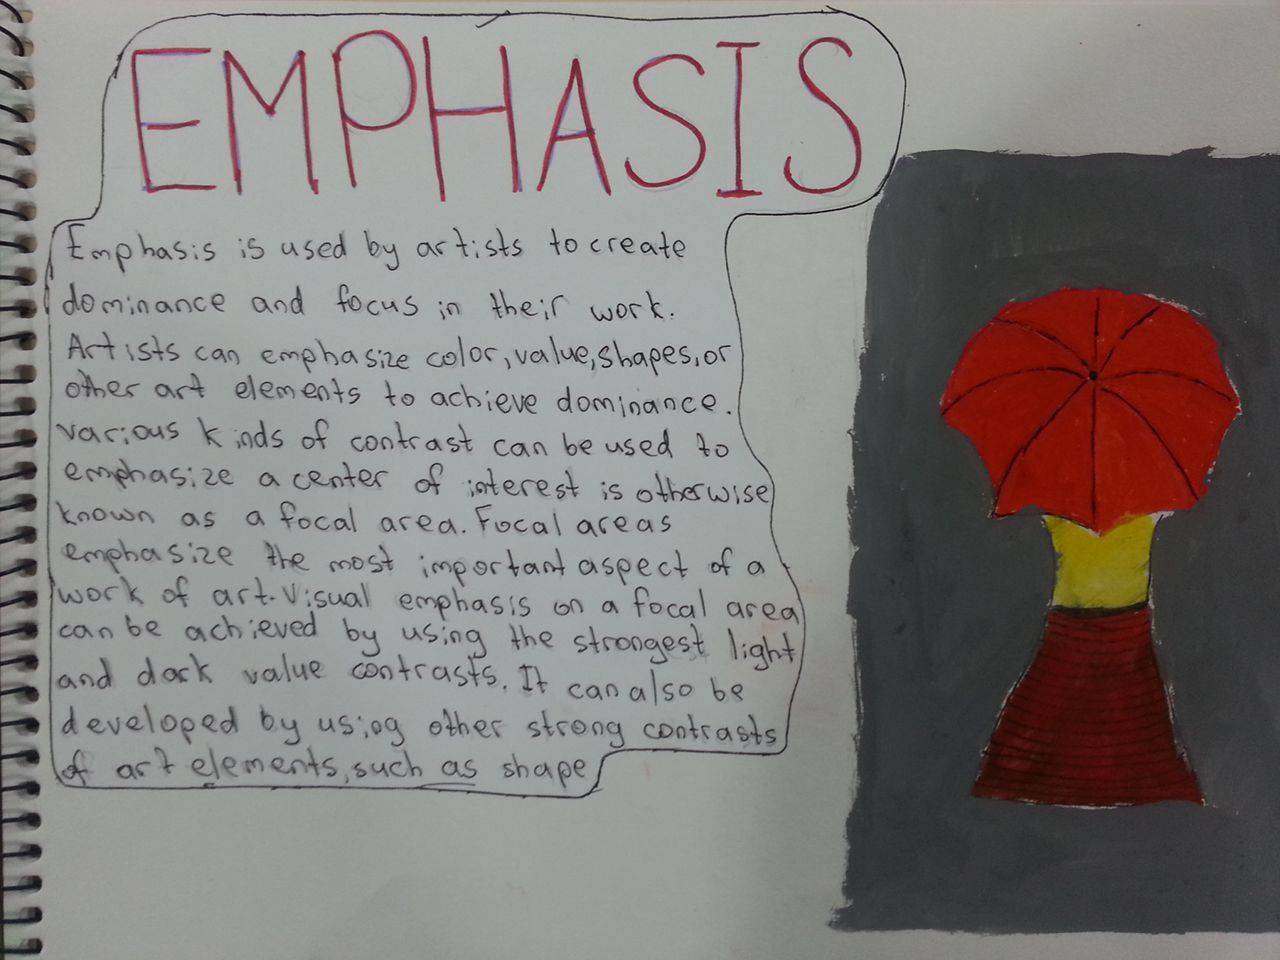 EMPHASIS
Emphasis is used by artists to create
dominance and focus in their work.
Artists can emphasize color, value, shapes, or
other art elements to achieve dominance.
various kinds of contrast can be used to
emphasize a center of interest is otherwise
known as a focal area. Focal areas
emphasize the most important aspect of a
work of art. Visual emphasis on a focal area
can be achieved by using the strongest light
and dark value contrasts. It can also be
developed by using other strong contrasts
of art elements, such as shape